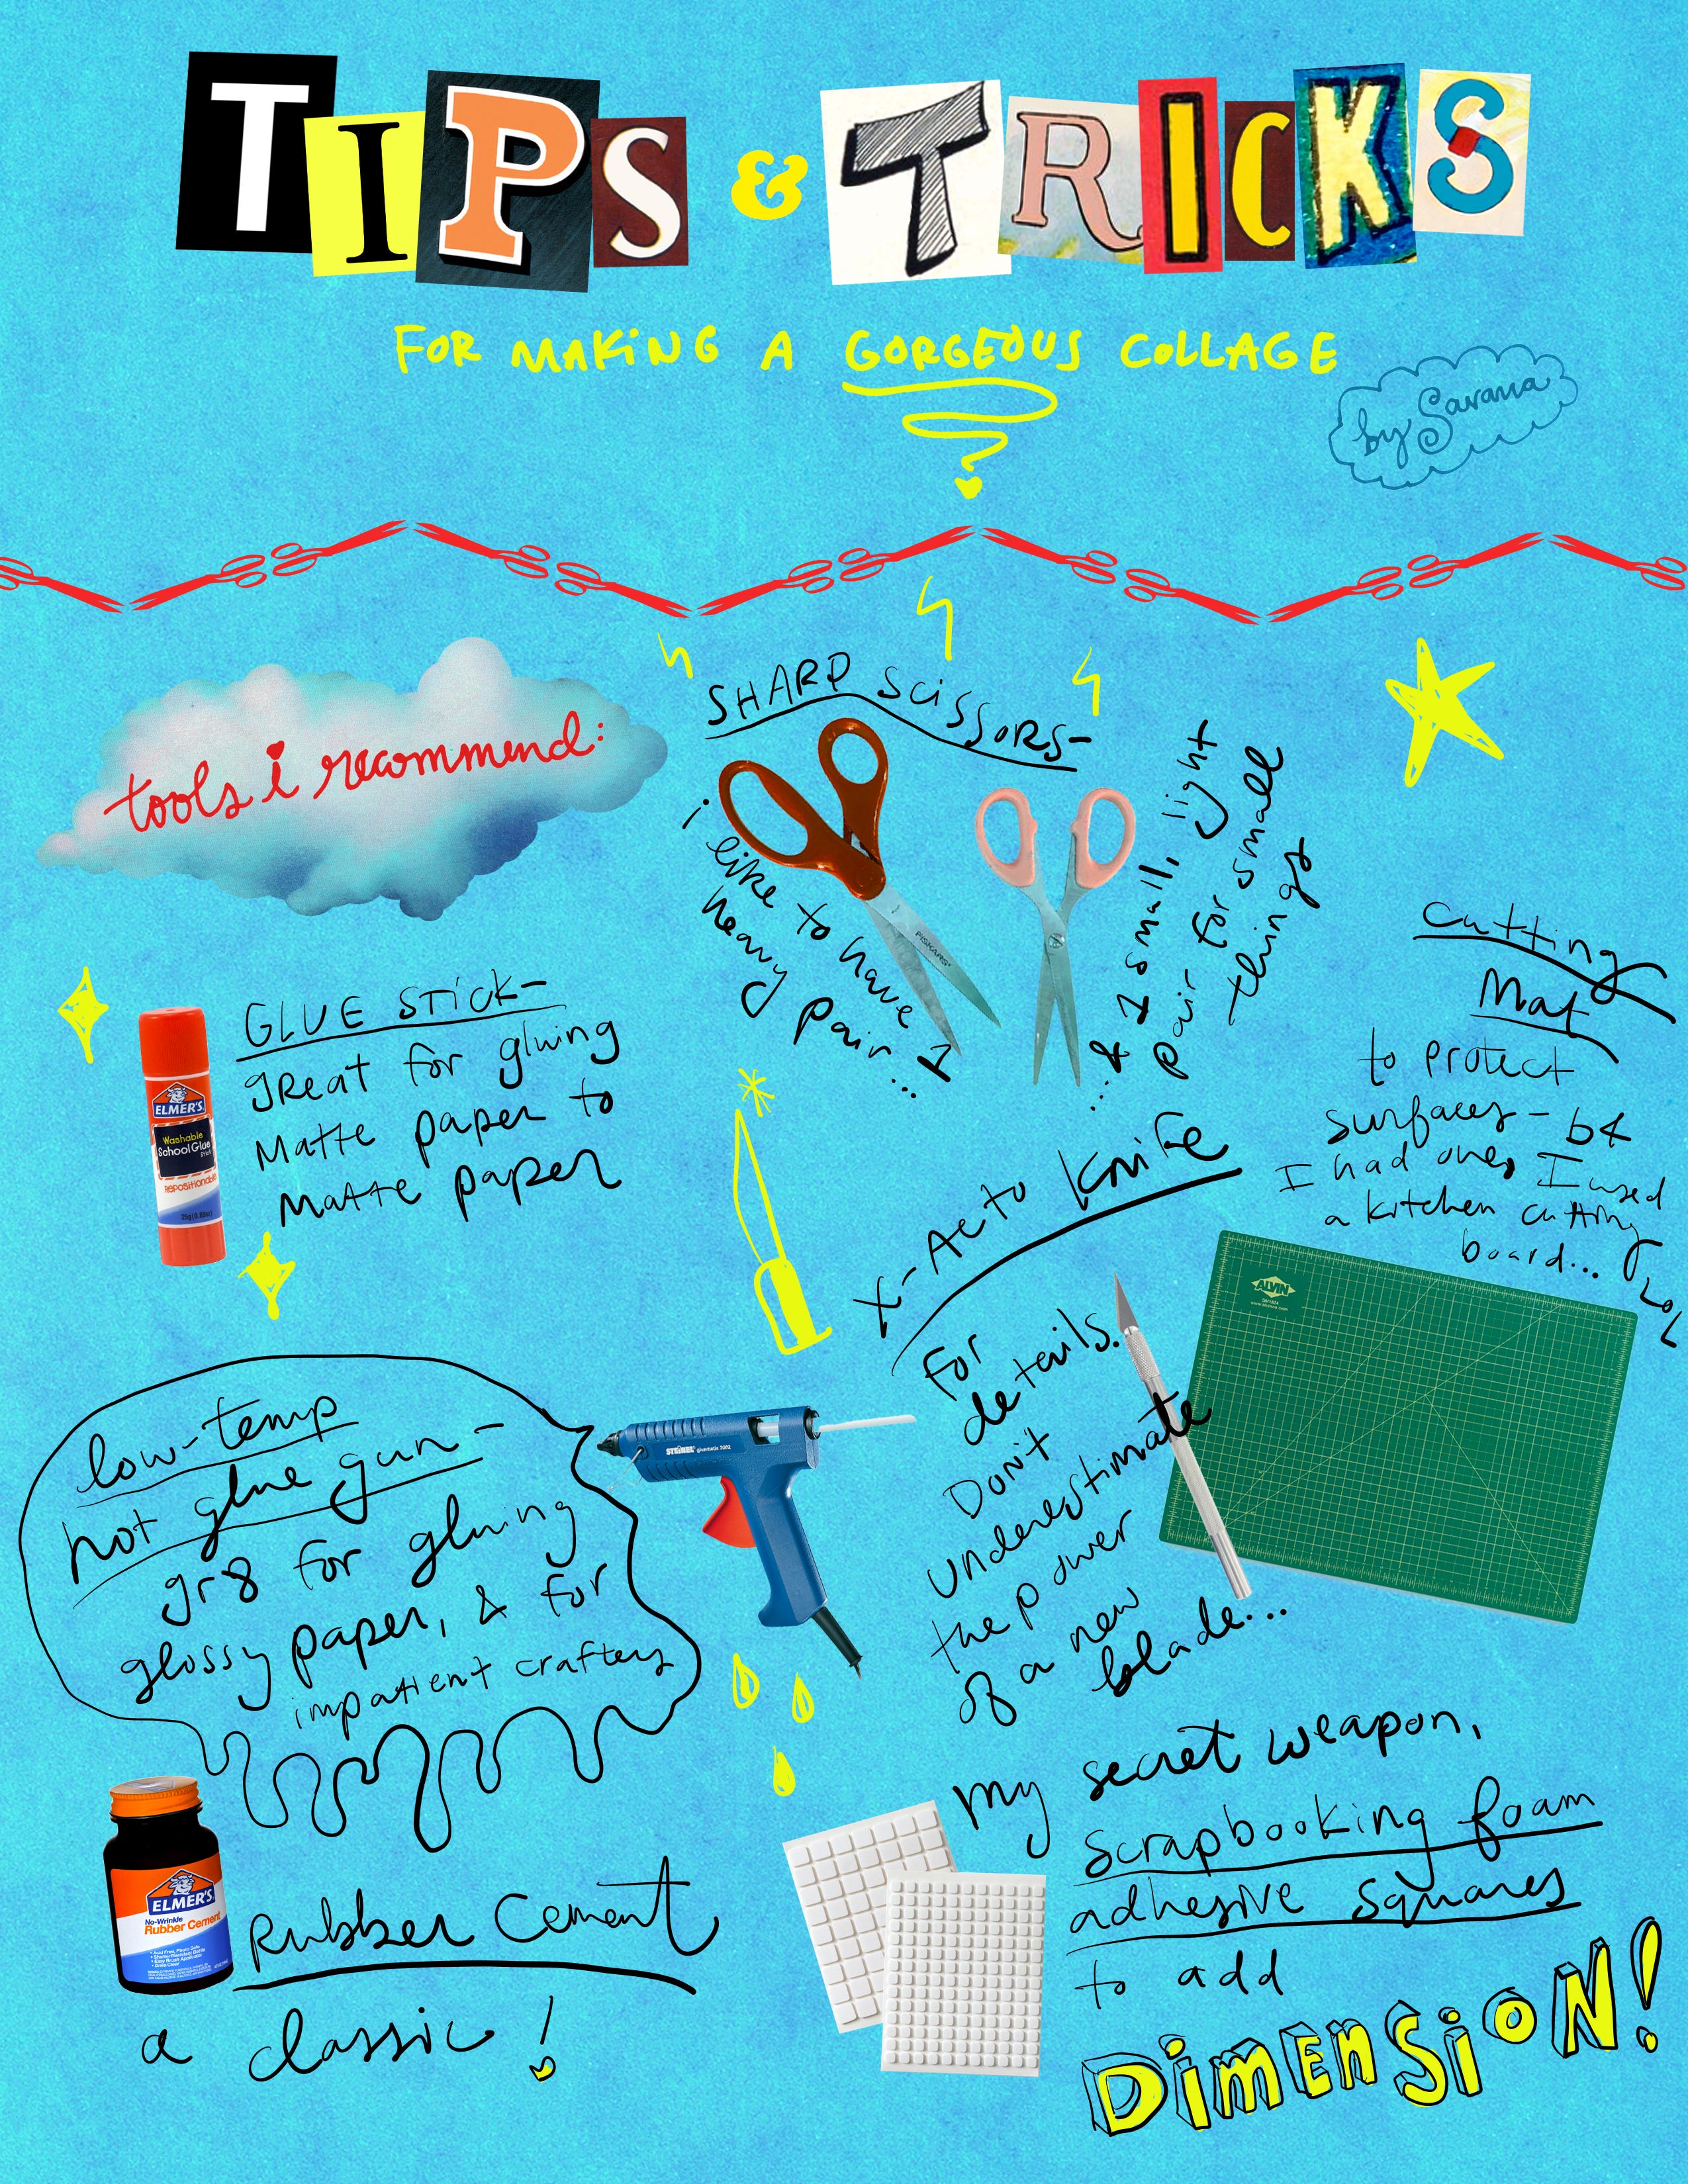 TIPS & TRICKS
FOR MAKING A GORGEOUS COLLAGE
by Savana
tools i recommend:
SHARP SCISSORS-
i like to have 1
heavy pair...
...& 1 small, light
pair for small
things
FISKARS
GLUE STICK-
great for gluing
Matte paper to
Matte paper
ELMER'S
Washable
School Glue
Stick
Repositionable
Cutting
Mat
to protect
surfaces - b4
I had one, I used
a kitchen cutting
board... LOL
ALVIN
X-Acto Knife
For
details.
Don't
underestimate
the power
of a new
blade...
low-temp
hot glue gun-
gr8 for gluing
glossy paper, & for
impatient crafters
STEINEL gluematic 3002
ELMER'S
No-Wrinkle
Rubber Cement
Rubber Cement
a classic!
my secret weapon,
scrapbooking foam
adhesive squares
to add
DIMENSION!